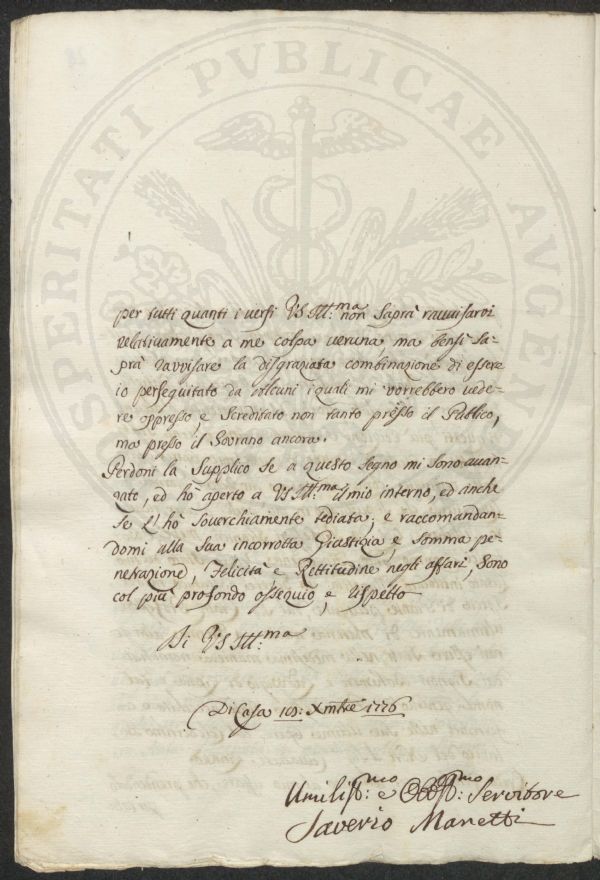 PROSPERITATI PVBLICAE AVGENDAE
per tutti quanti i versi VS Ill:ma non saprà ravvisarvi
relativamente a me colpa veruna ma bensì sa-
prà ravvisare la disgraziata combinazione di essere
io perseguitato da alcuni i quali mi vorrebbero vede-
re oppresso, e screditato non tanto presso il Publico,
ma presso il Sovrano ancora.
Perdoni la supplico se a questo segno mi sono avan-
zato, ed hò aperto a VS Ill:ma il mio interno, ed anche
se l'hò soverchiamente tediata; e raccomandan-
domi alla sua incorrotta Giustizia e somma pe-
netrazione, Felicità e Rettitudine negli affari, sono
col più profondo ossequio, e rispetto
Di VS Ill:ma
Di Casa Xmbre 1776
Umiliss:mo e Obb:mo Servitore
Saverio Manetti